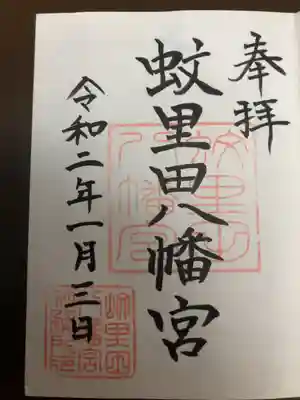 奉拝
蚊里田八幡宮
令和二年一月三日